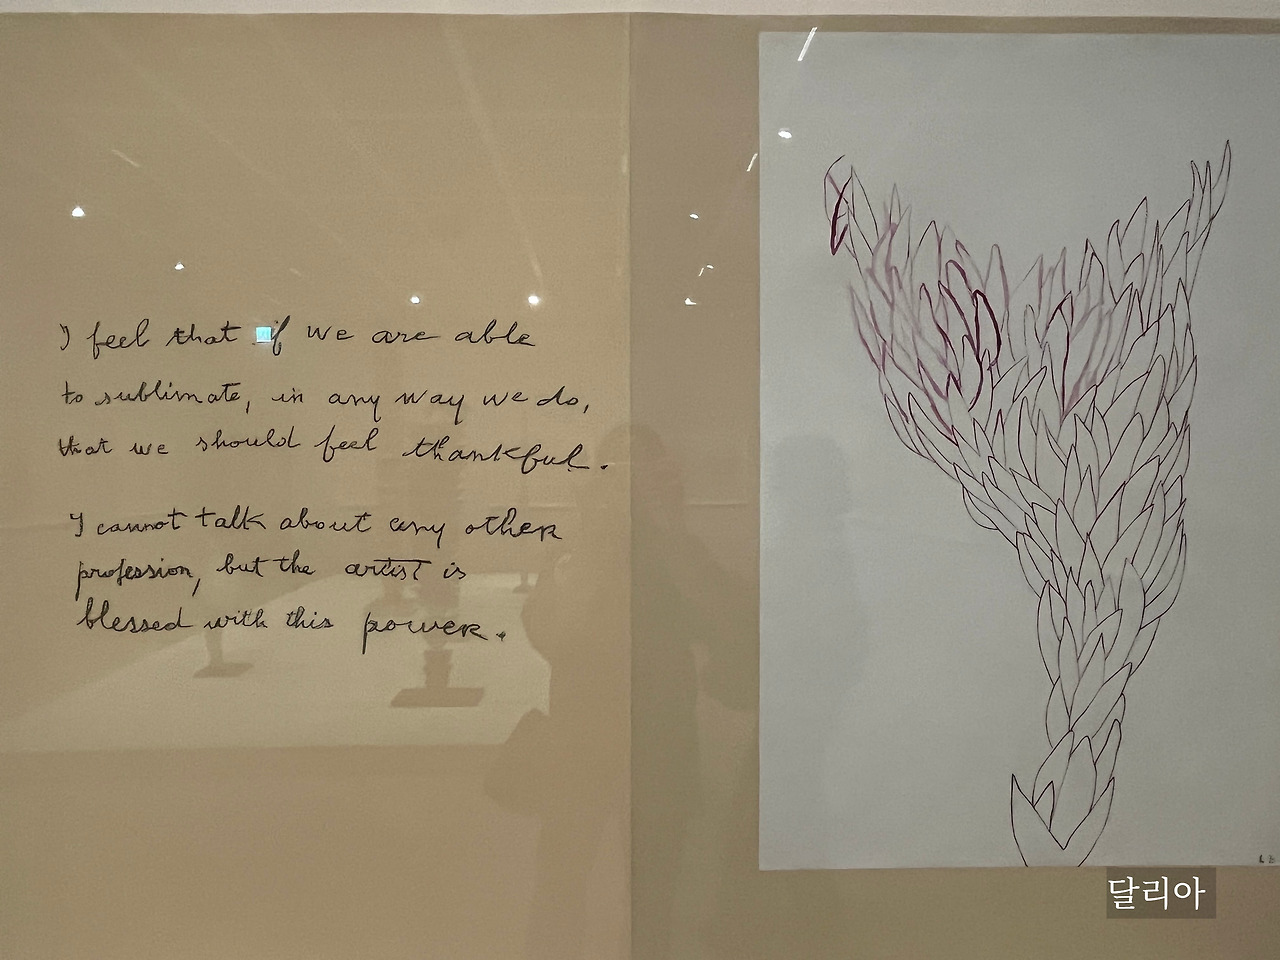 I feel that if we are able
to sublimate, in any way we do,
that we should feel thankful.
I cannot talk about any other
profession, but the artist is
blessed with this power.
달리아